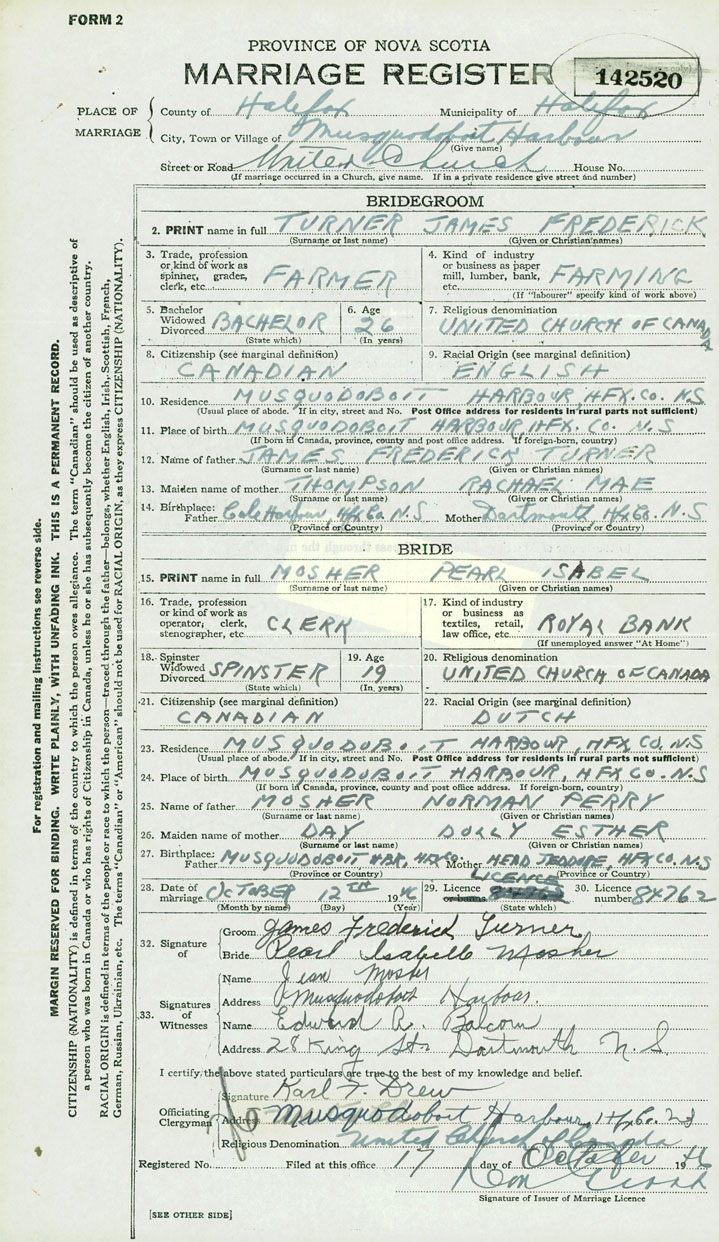 FORM 2
PROVINCE OF NOVA SCOTIA
MARRIAGE REGISTER
142520
PLACE OF MARRIAGE
County of Halifax Municipality of Halifax
City, Town or Village of Musquodoboit Harbour
(Give name)
Street or Road United Church House No.
(If marriage occurred in a Church, give name. If in a private residence give street and number)
BRIDEGROOM
2. PRINT name in full TURNER JAMES FREDERICK
(Surname or last name) (Given or Christian names)
3. Trade, profession or kind of work as spinner, grader, clerk, etc. FARMER
4. Kind of industry or business as paper mill, lumber, bank, etc. FARMING
(If "labourer" specify kind of work above)
5. Bachelor Widowed Divorced BACHELOR
(State which)
6. Age 26
(In years)
7. Religious denomination
UNITED CHURCH OF CANADA
8. Citizenship (see marginal definition)
CANADIAN
9. Racial Origin (see marginal definition)
ENGLISH
10. Residence MUSQUODOBOIT HARBOUR, HFX. CO. N.S
(Usual place of abode. If in city, street and No. Post Office address for residents in rural parts not sufficient)
11. Place of birth MUSQUODOBOIT HARBOUR, HFX. CO. N.S
(If born in Canada, province, county and post office address. If foreign-born, country)
12. Name of father JAMES FREDERICK TURNER
(Surname or last name) (Given or Christian names)
13. Maiden name of mother THOMPSON RACHAEL MAE
(Surname or last name) (Given or Christian names)
14. Birthplace: Father Cole Harbour, Hfx Co. N.S Mother Dartmouth, Hfx Co. N.S
(Province or Country) (Province or Country)
BRIDE
15. PRINT name in full MOSHER PEARL ISABEL
(Surname or last name) (Given or Christian names)
16. Trade, profession or kind of work as operator, clerk, stenographer, etc. CLERK
17. Kind of industry or business as textiles, retail, law office, etc. ROYAL BANK
(If unemployed answer "At Home")
18. Spinster Widowed Divorced SPINSTER
(State which)
19. Age 19
(In years)
20. Religious denomination
UNITED CHURCH OF CANADA
21. Citizenship (see marginal definition)
CANADIAN
22. Racial Origin (see marginal definition)
DUTCH
23. Residence MUSQUODOBOIT HARBOUR, HFX CO. N.S
(Usual place of abode. If in city, street and No. Post Office address for residents in rural parts not sufficient)
24. Place of birth MUSQUODOBOIT HARBOUR, HFX CO. N.S
(If born in Canada, province, county and post office address. If foreign-born, country)
25. Name of father MOSHER NORMAN PERRY
(Surname or last name) (Given or Christian names)
26. Maiden name of mother DAY DOLLY ESTHER
(Surname or last name) (Given or Christian names)
27. Birthplace: Father MUSQUODOBOIT HBR, HFX CO. Mother HEAD JEDDORE, HFX CO. N.S
(Province or Country) (Province or Country)
28. Date of marriage OCTOBER 12TH 1946
(Month by name) (Day) (Year)
29. Licence or banns LICENCE
(State which)
30. Licence number 84762
32. Signature of
Groom James Frederick Turner
Bride Pearl Isabelle Mosher
33. Signatures of Witnesses
Name Jean Mosher
Address Musquodoboit Harbour.
Name Edward A. Balcom
Address 28 King St. Dartmouth N.S.
I certify the above stated particulars are true to the best of my knowledge and belief.
Officiating Clergyman
Signature Karl F. Drew
Address Musquodoboit Harbour, Hfx Co.
Religious Denomination United Church of Canada
Registered No. Filed at this office 17 day of October 1946
Signature of Issuer of Marriage Licence
[SEE OTHER SIDE]
For registration and mailing instructions see reverse side.
MARGIN RESERVED FOR BINDING. WRITE PLAINLY, WITH UNFADING INK. THIS IS A PERMANENT RECORD.
CITIZENSHIP (NATIONALITY) is defined in terms of the country to which the person owes allegiance. The term "Canadian" should be used as descriptive of
a person who was born in Canada or who has rights of Citizenship in Canada, unless he or she has subsequently become the citizen of another country.
RACIAL ORIGIN is defined in terms of the people or race to which the person—traced through the father—belongs, whether English, Irish, Scottish, French,
German, Russian, Ukrainian, etc. The terms "Canadian" or "American" should not be used for RACIAL ORIGIN, as they express CITIZENSHIP (NATIONALITY).